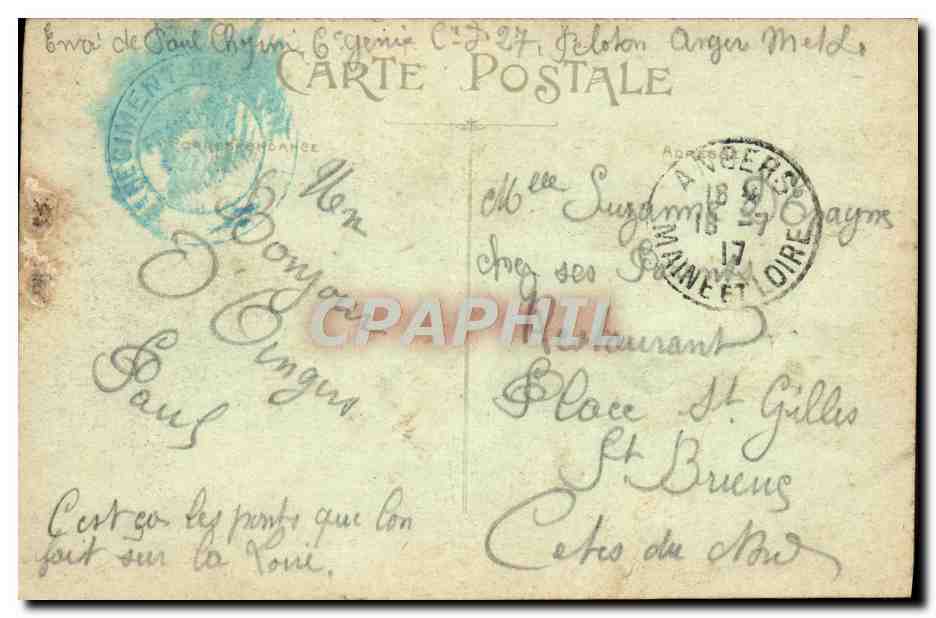 Envoi de Paul 6e génie Cie 27, Peloton Anger Met L.
CARTE POSTALE
CORRESPONDANCE
ADRESSE
REGIMENT DU
ANGERS
18
16 -7
17
MAINE ET LOIRE
Un
Bonjour
D'Angers
Paul
C'est ça les ponts que l'on
fait sur la Loire.
Mlle Suzanne
chez ses Parents
Restaurant
Place St Gilles
St Brieuc
Cotes du Nord
CPAPHIL